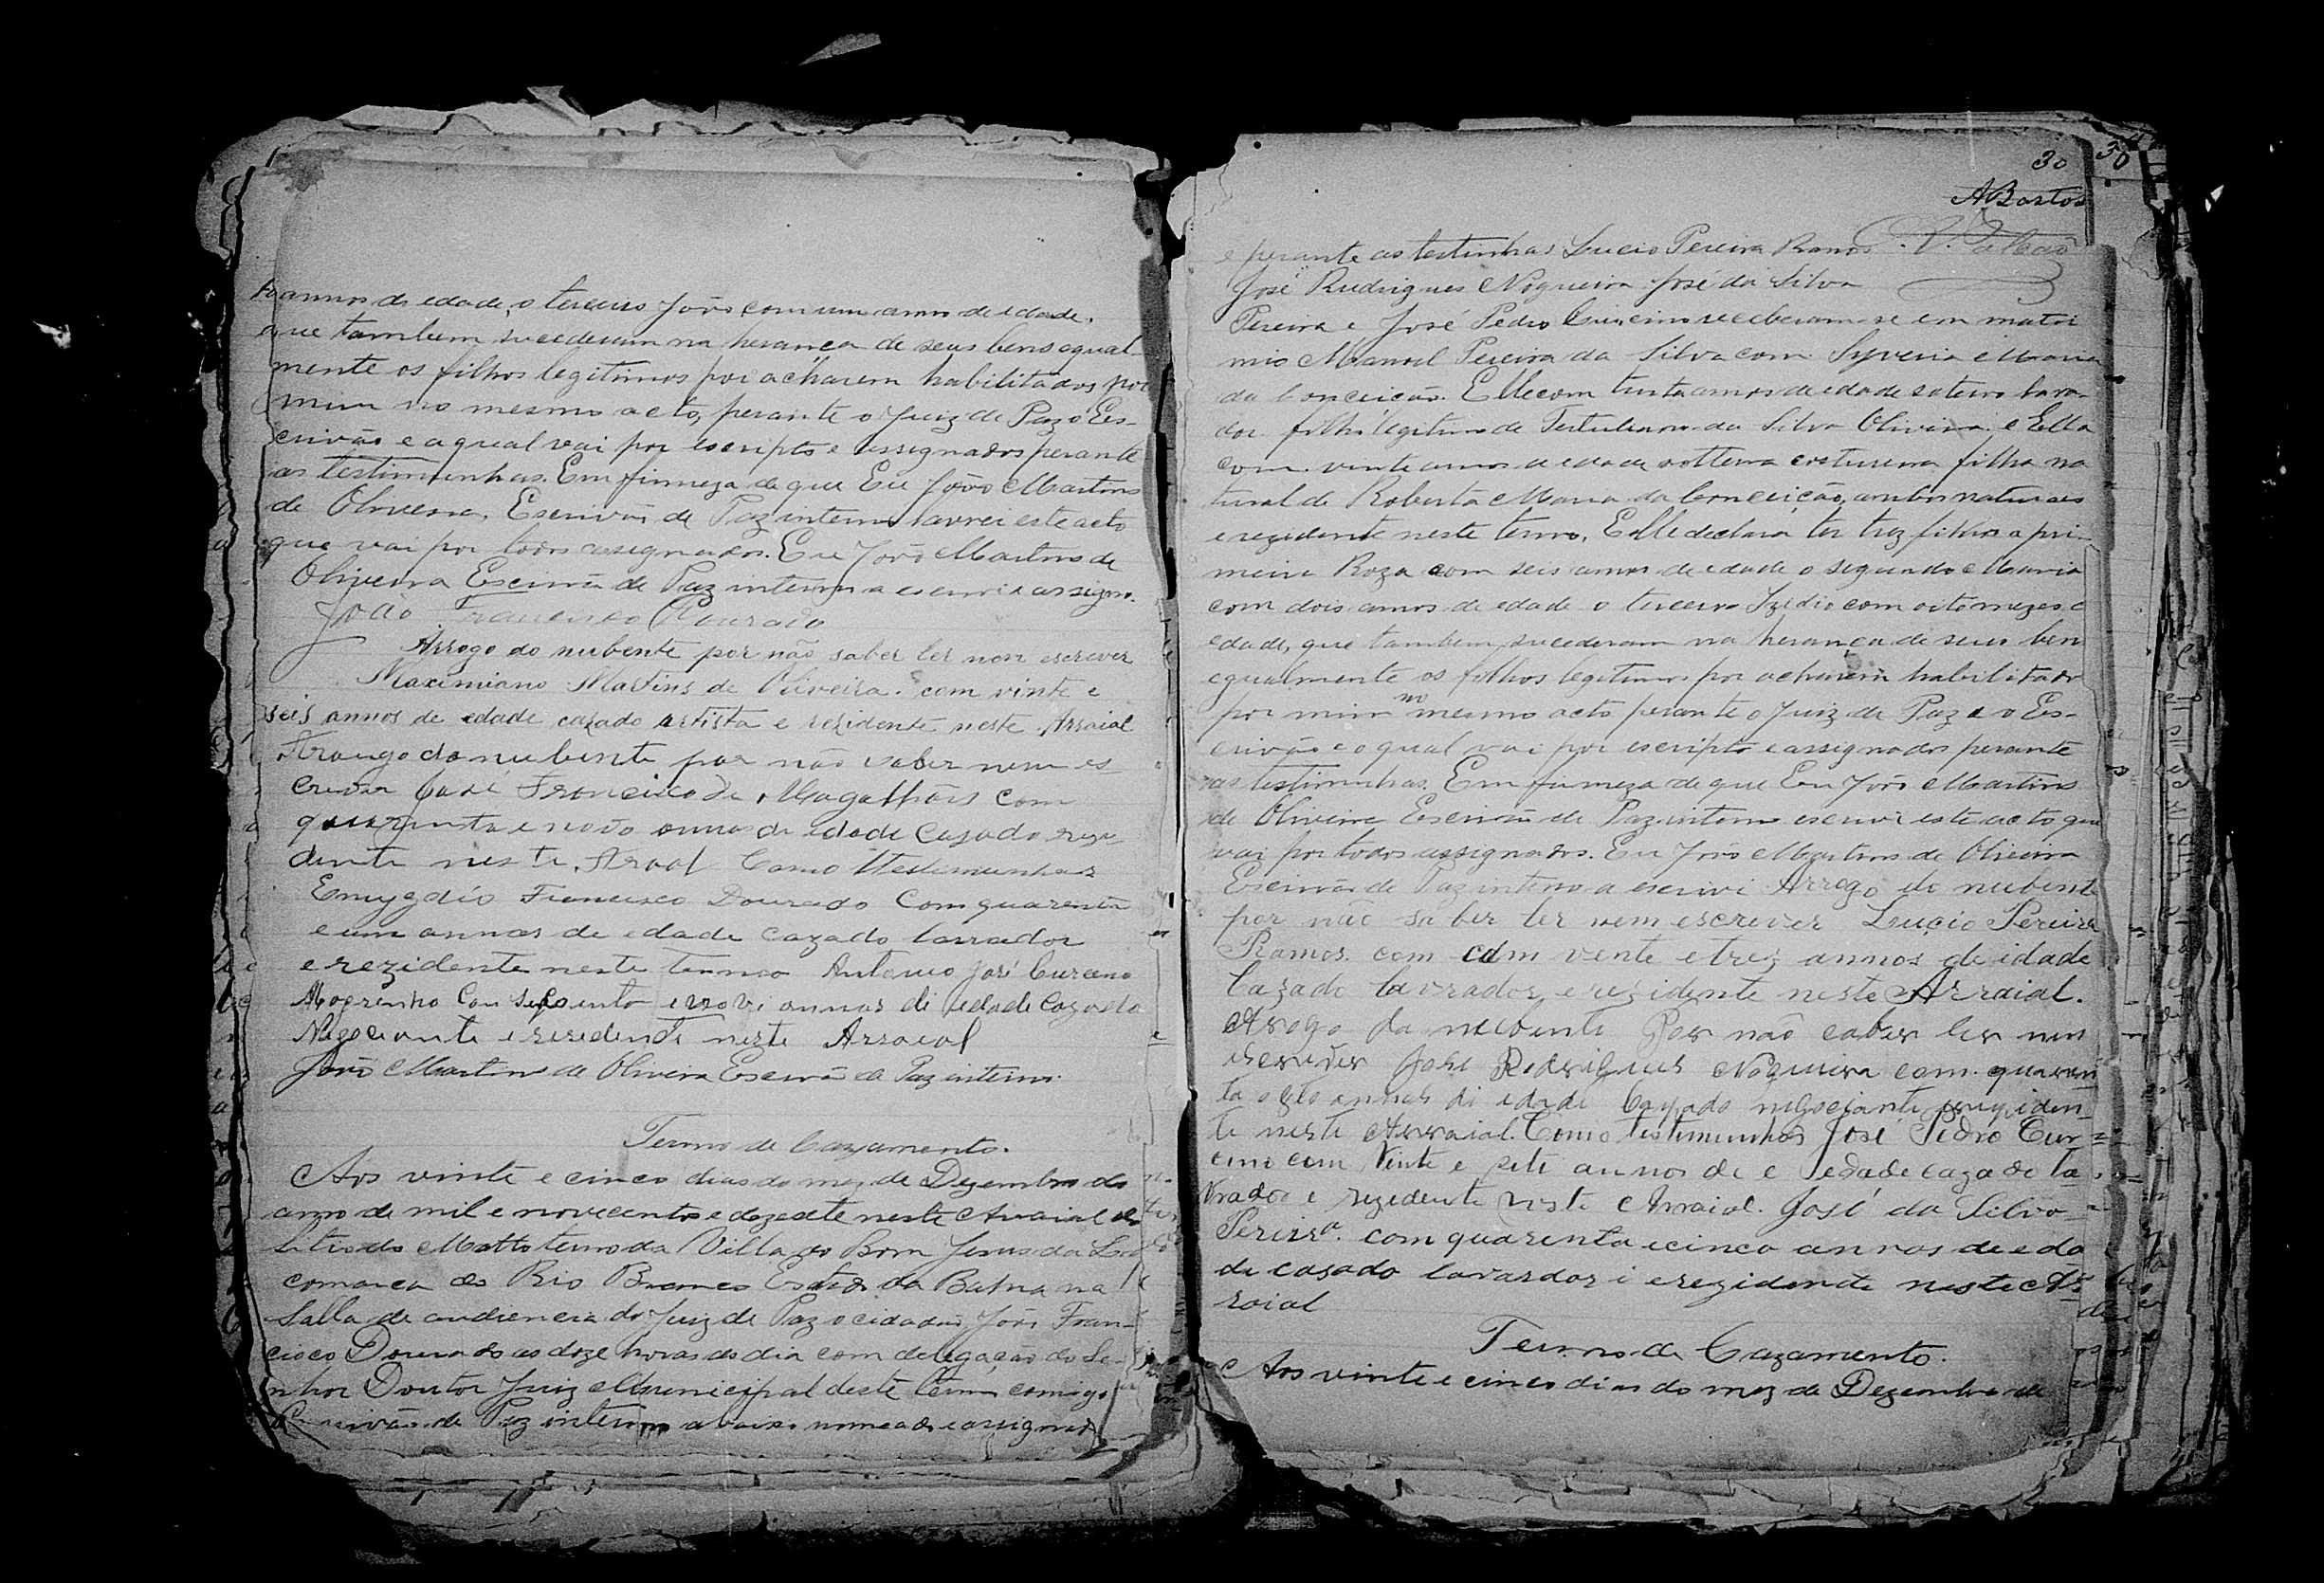 annos de edade, o terceiro João com um anno de edade,
que tambem sucederam na herança de seus bens egual-
mente os filhos legitimos por acharem habilitados por
mim no mesmo acto, perante o Juiz de Paz o Es-
crivão e a qual vai por escripto e assignados perante
as testimunhas. Em firmeza de que Eu João Martins
de Oliveira, Escrivão de Paz interino lavrei este acto
que vai por todos assignados. Eu João Martins de
Oliveira Escrivão de Paz interino a escrevi e assigno.
João Francisco Dourado
Arrogo do nubente por não saber ler nem escrever
Maximiano Martins de Oliveira. com vinte e
seis annos de edade cazado artista e rezidente neste Arraial
Arougo da nubente por não saber nem es-
crever José Francisco de Magalhães com
quarenta e novo annos de edade Cazado rezi-
dente neste Araal Como Testemunhas
Emygdio Francisco Dourado Com quarenta
e um annos de edade cazado lavrador
e rezidente neste termo Antonio José Curcino
Com annos di edade Cazado
Negociante e rezidente neste Arraial
João Martins de Oliveira Escrivão de Paz interino.
Termo de Cazamento.
Aos vinte e cinco dias do mez de Dezembro do
anno de mil e novecentos e dezesete neste Arraial do
Sitio do Matto termo da Villa do Bom Jesus da
comarca do Rio Estado da Bahia na
Salla de audiencia do Juiz de Paz o cidadão João Fran-
cisco Dourado as doze horas do dia com delegação do Se-
nhor Doutor Juiz Municipal deste termo comigo
Escrivão de Paz interino abaixo nomeado e assignado
30
30
ABastos
e perante as testinhas Lucio Pereira Ramos
José Rudrigues Nogueira José da Silva
Pereira e José Pedro Curcino receberam-se em matri
mio Manoel Pereira da Silva com Syveria Maria
da Conceição. Elle com trinta annos de edade soteiro lavra-
dor filho legitimo de da Silva Oliveira e Ella
com vinte annos de edade solteira costureira filha na
tural de Roberta Maria da Conceição, ambos naturaes
e rezidente neste termo. Elle declara ter trez filhos a pri-
meira Roza com seis annos de edade o segundo Maria
com dois annos de edade o terceiro Izidio com oito mezes
edade, que tambem sucederam na herança de seus ben
egualmente os filhos legitimos por acharem habilitado
por mim no mesmo acto perante o Juiz de Paz e o Es-
crivão e o qual vai por escripto e assignados perante
as testimunhas. Em firmeza de que Eu João Martins
de Oliveira Escrivão de Paz interino escrevi este acto que
vai por todos assignados. Eu João Martins de Oliveira
Escrivão de Paz interino a escrivi Arrogo do nubente
por não saber ler nem escrever Lucio Pereira
Ramos. com com vente e trez annos de idade
Cazado lavrador, e rezidente neste Arraial.
Arogo da nubente Por não saber ler nem
escrever José Rodrigues Nogueira com. quaren
ta oito annos di edade Cazado negociante reziden
te neste Arraial. Como testimunhas José Pedro Cur
cino com Vinte e sete annos de e edade cazado la
vrador e rezidente neste Arraial. José da Silva
Pereira. com quarenta e cinco annos de eda
de casado lavardor i erezidente neste Ar
raial
Termo de Cazamento.
Aos vinte e cinco dias do mez de Dezembro de